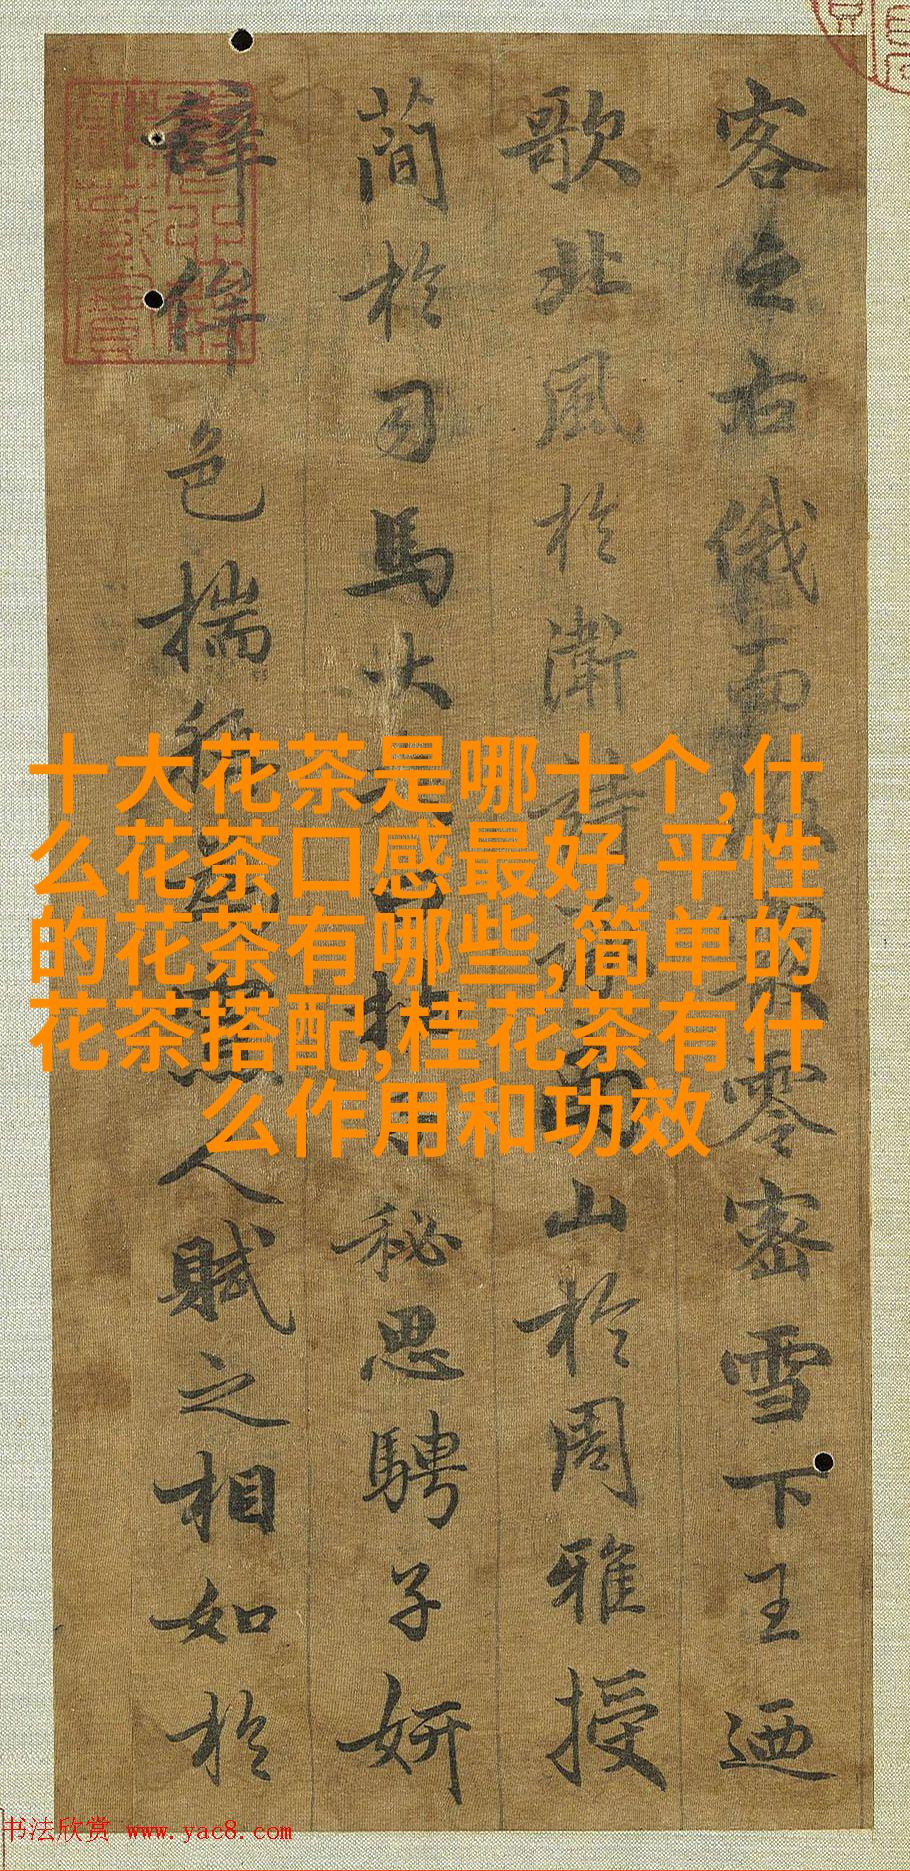 十大花茶是哪十个,什
么花茶口感最好,平性
的花茶有哪些,简单的
花茶搭配,桂花茶有什
么作用和功效
客之右俄而零密雪下王迺
歌北風於衛詩南山於周雅授
簡於司馬大抽秘思騁子妍
辭侔色揣稱為寡人賦之相如於
书法欣赏 www.yac8.com